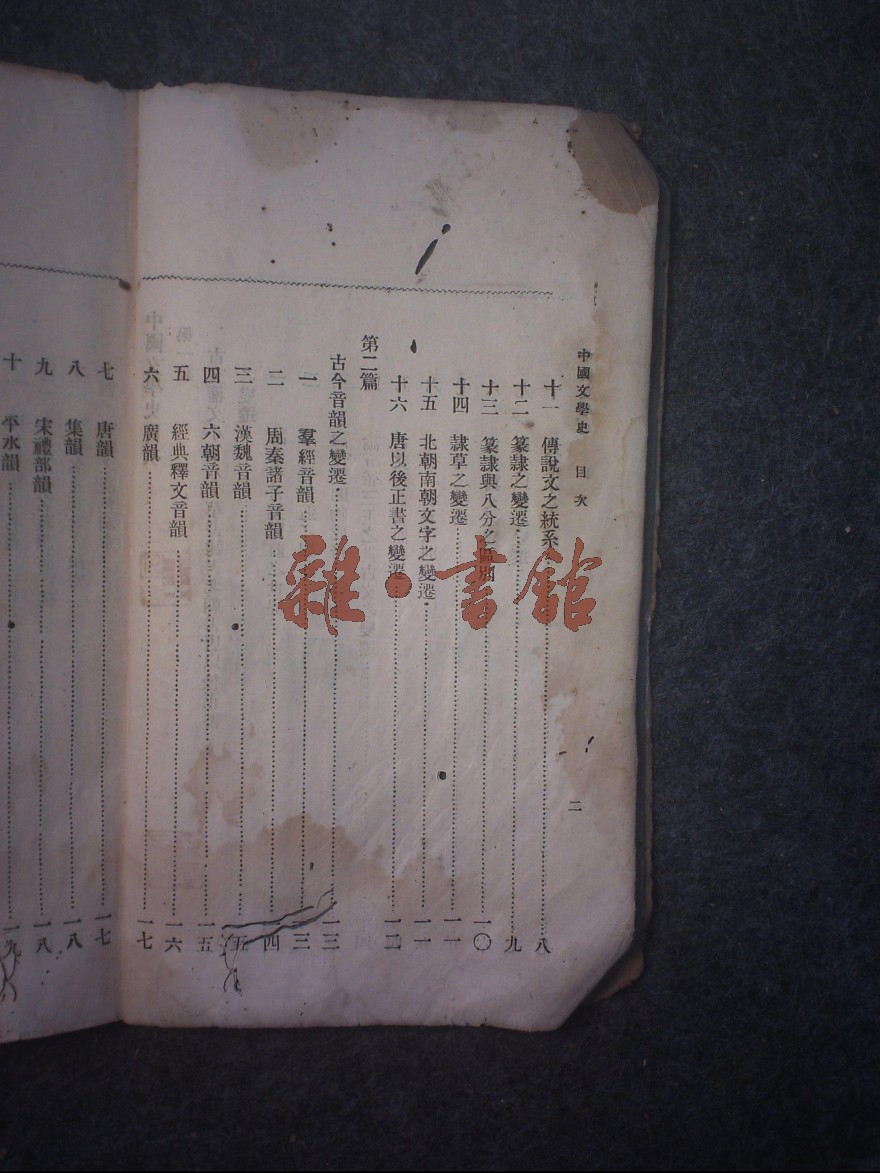 中國文學史　目次　二
十一　傳說文之統系……八
十二　篆隸之變遷……九
十三　篆隸與八分之區別……一〇
十四　隷草之變遷……一一
十五　北朝南朝文字之變遷……一一
十六　唐以後正書之變遷……一二
第二篇
古今音韻之變遷……一三
一　羣經音韻……一三
二　周秦諸子音韻……一四
三　漢魏音韻……一五
四　六朝音韻……一五
五　經典釋文音韻……一六
六　廣韻……一七
七　唐韻……一七
八　集韻……一八
九　宋禮部韻……一八
十　平水韻……一九
雜·書館